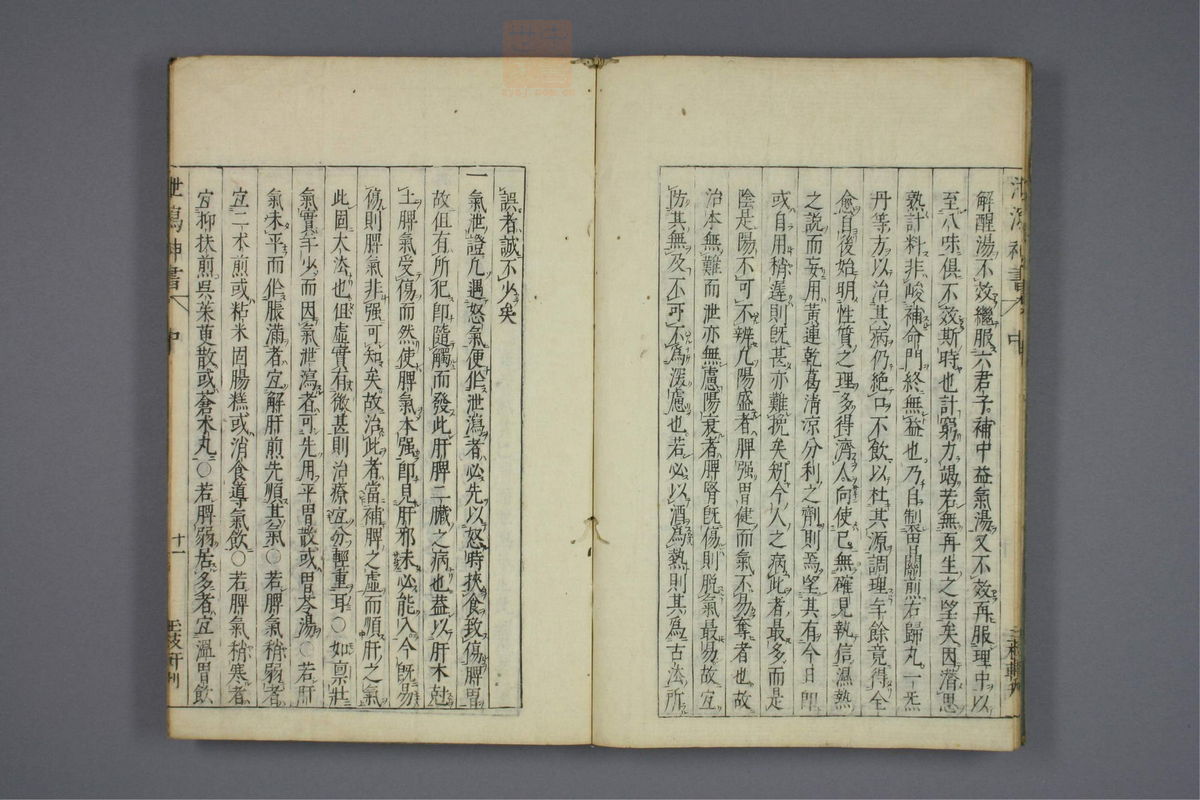 解酲湯不效繼服六君子補中益氣湯又不效再服理中以
至八味俱不效斯時也計窮力竭若無再生之望矣因潛思
熟計料非峻補命門終無益也乃自制胃關煎右歸丸一炁
丹等方以治其病仍絶口不飲以杜其源調理年餘竟得全
愈自後始明性質之理多得濟人向使己無確見執信濕熱
之說而妄用黃連乾葛清凉分利之劑則焉望其有今日即
或自用稍遲則既甚亦難挽矣矧今人之病此者最多而是
陰是陽不可不辨凡陽盛者脾强胃健而氣不易奪者也故
治本無難而泄亦無慮陽衰者脾腎既傷則脫氣最易故宜
防其無及不可不爲深慮也若必以酒爲熱則其爲古法所
誤者誠不少矣
一氣泄證凡遇怒氣便作泄瀉者必先以怒時挾食致傷脾胃
故但有所犯卽隨觸而發此肝脾二臟之病也蓋以肝木尅
土脾氣受傷而然使脾氣本强卽見肝邪未必能入今既易
傷則脾氣非强可知矣故治此者當補脾之虛而順肝之氣
此固大法也但虛實有微甚則治療宜分輕重耳○如禀壯
氣實年少而因氣泄瀉者可先用平胃散或胃苓湯○若肝
氣未平而作脹滿者宜解肝煎先順其氣○若脾氣稍弱者
宜二朮煎或粘米固腸糕或消食導氣飲○若脾氣稍寒者
宜抑扶煎吳茱萸散或蒼朮丸○若脾弱居多者宜溫胃飲
泄瀉神書
中
十一